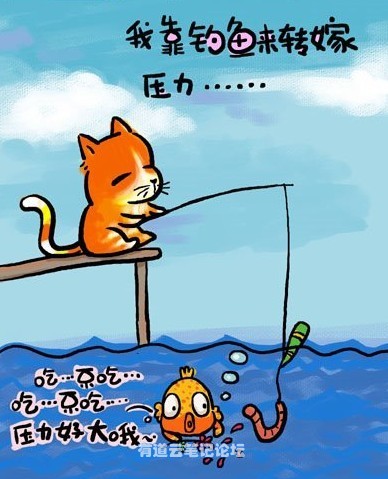 我靠钓鱼来转嫁
压力……
吃…不吃…
吃…不吃…
压力好大哦~
有道云笔记论坛